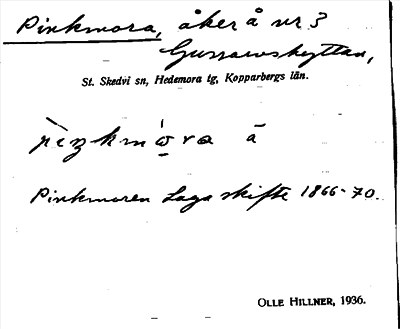 Pinkmora, åker å nr 3
Gussarvshyttan,
St. Skedvi sn, Hedemora tg, Kopparbergs län.
å
Pinkmoren Laga skifte 1866-70.
OLLE HILLNER, 1936.